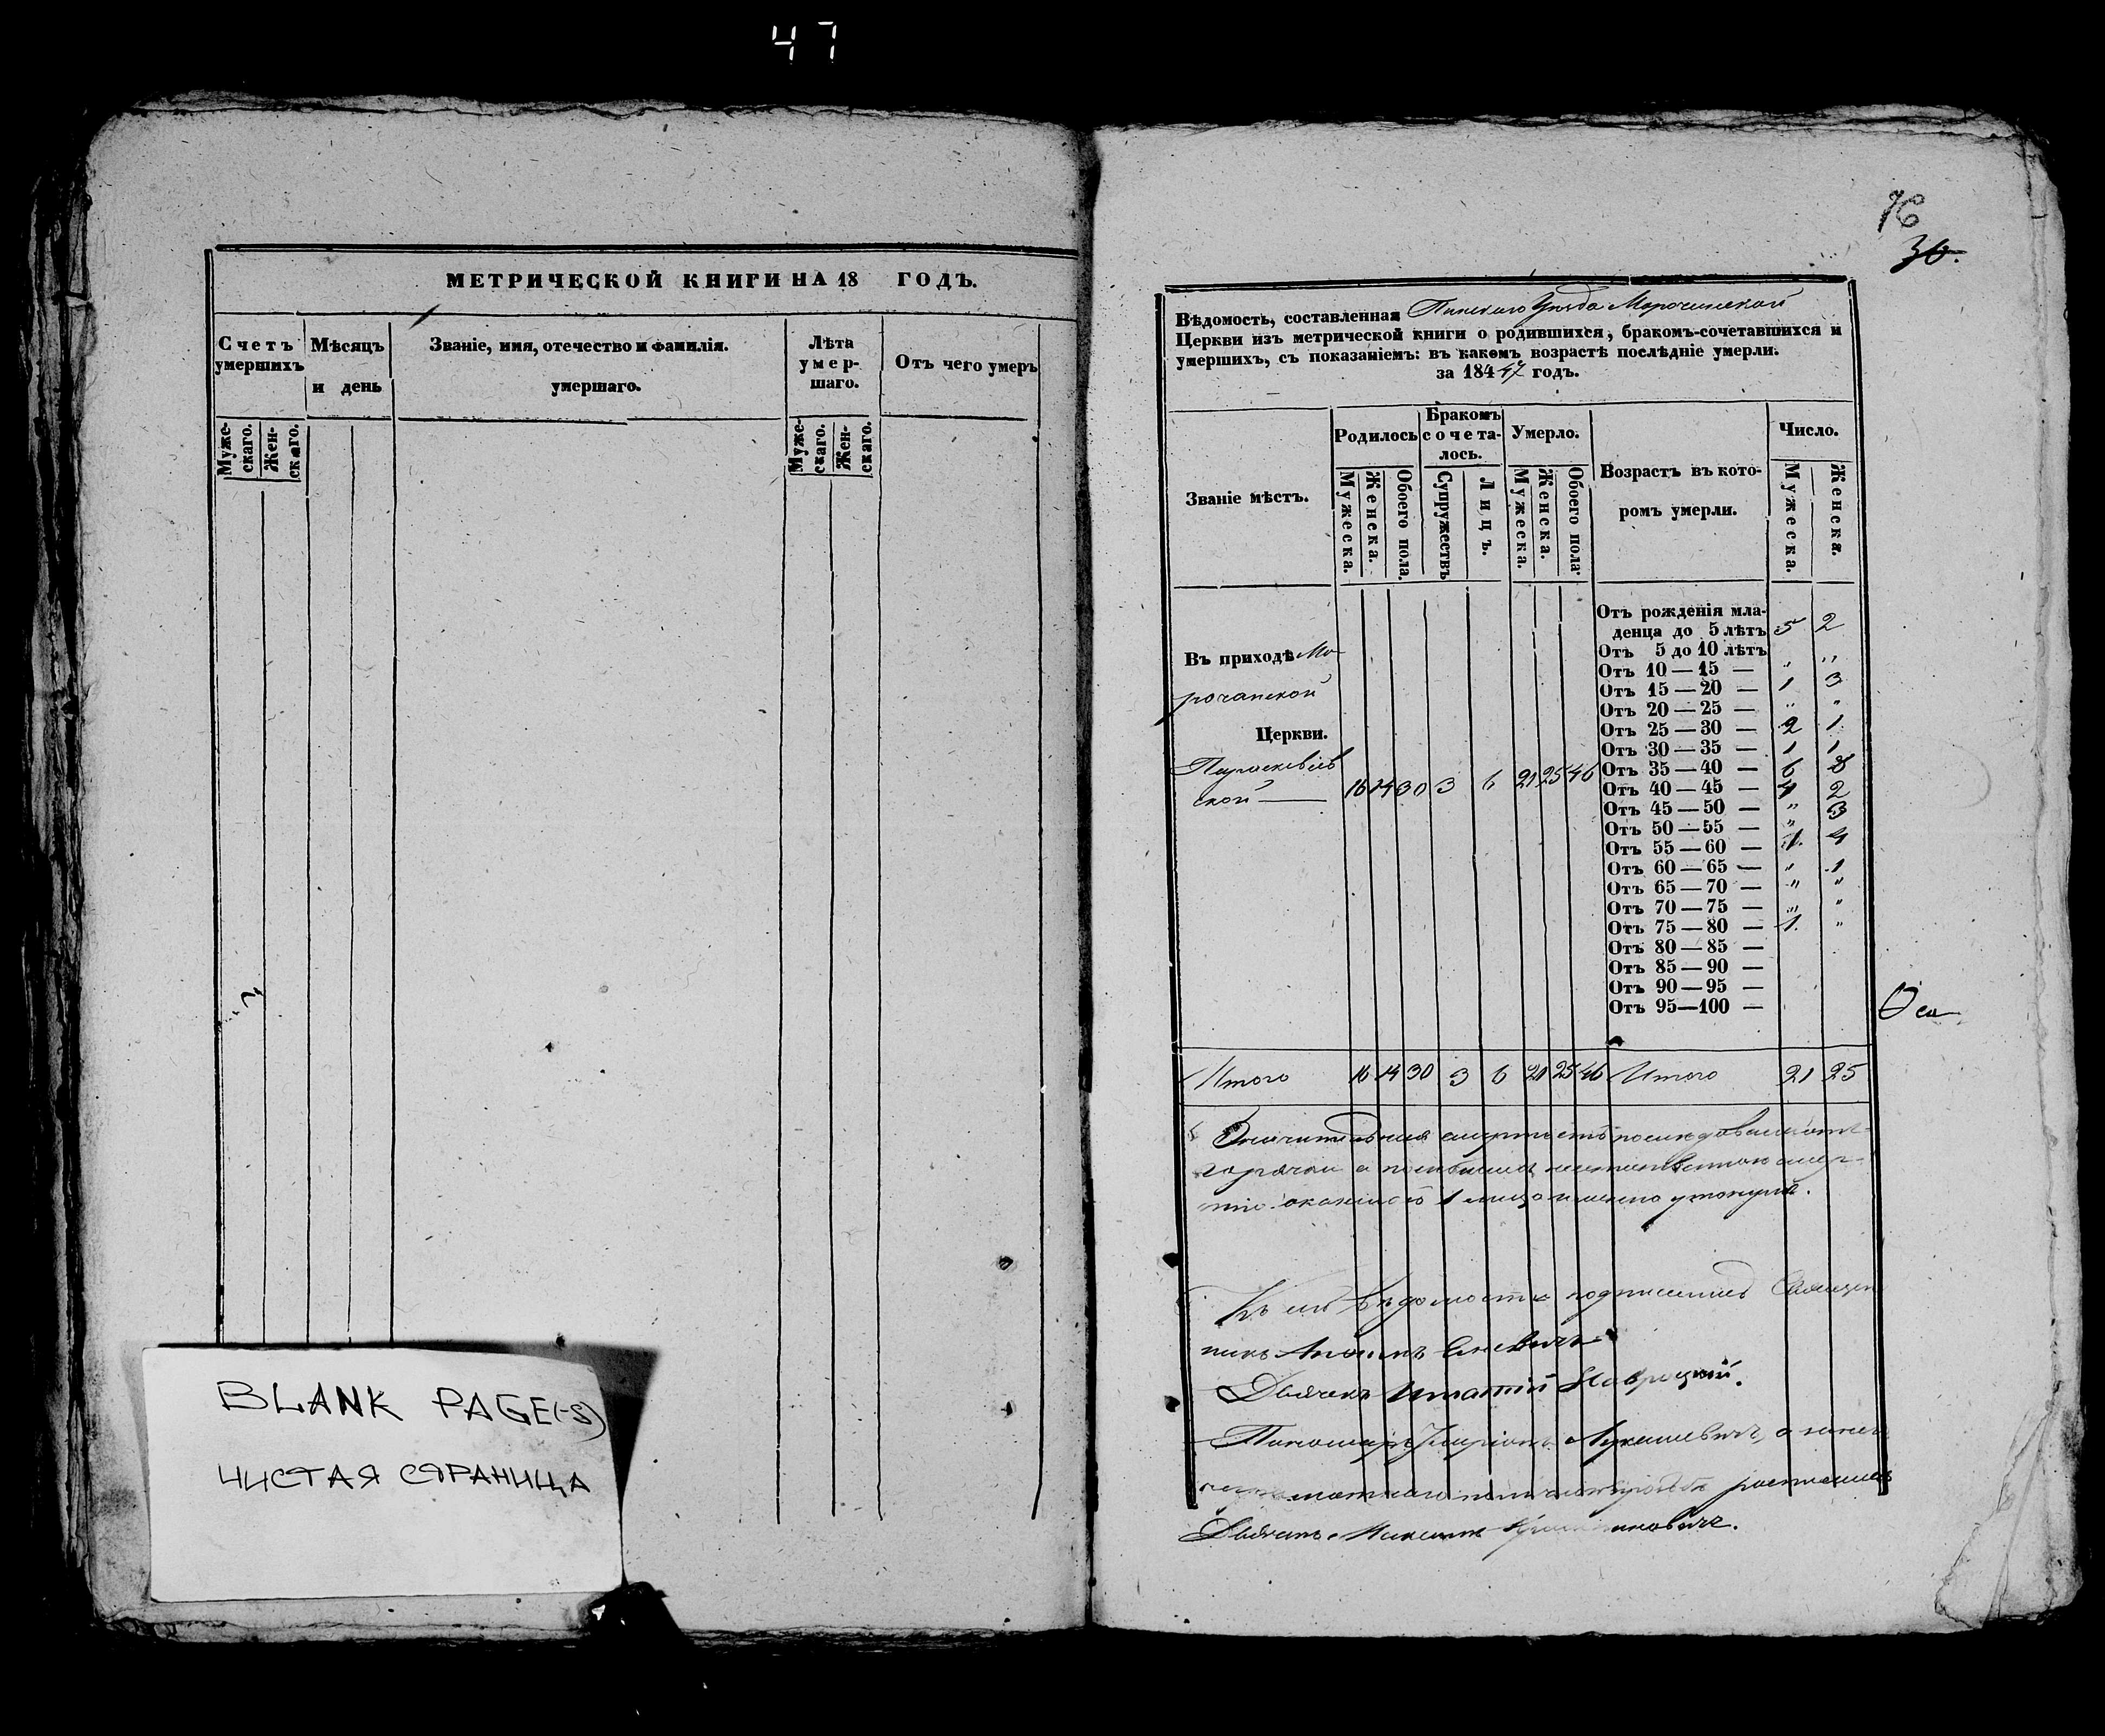 47
МЕТРИЧЕСКОЙ КНИГИ НА 18 ГОДЪ.
Счетъ умершихъ
Мѣсяцъ и день
Званіе, имя, отечество и фамилія.
умершаго.
Лѣта умер-
шаго.
Отъ чего умеръ
Муже-
скаго.
Жен-
скаго.
Муже-
скаго.
Жен-
скаго.
BLANK PAGE(-S)
ЧИСТАЯ СТРАНИЦА
76
30.
Вѣдомость, составленная Пинскаго Уѣзда Морочанской
Церкви изъ метрической книги о родившихся, бракомъ-сочетавшихся и
умершихъ, съ показаніемъ: въ какомъ возрастѣ послѣдніе умерли.
за 184 47 годъ.
Званіе мѣстъ.
Родилось
Бракомъ
сочета-
лось.
Умерло.
Возрастъ въ кото-
ромъ умерли.
Число.
Мужеска.
Женска.
Обоего пола.
Супружествъ
Лицъ.
Мужеска.
Женска.
Обоего пола.
Мужеска.
Женска.
Въ приходѣ Мо-
рочанской
Церкви.
Параскевiев
ской 16 14 30 3 6 21 25 46
Отъ рожденія мла-
денца до 5 лѣтъ 5 2
Отъ 5 до 10 лѣтъ
Отъ 10 — 15 — " "
Отъ 15 — 20 — 1 3
Отъ 20 — 25 — " "
Отъ 25 — 30 — 2 1
Отъ 30 — 35 — 1 1
Отъ 35 — 40 — 6 8
Отъ 40 — 45 — 4 2
Отъ 45 — 50 — " 3
Отъ 50 — 55 — "
Отъ 55 — 60 — 1. 4
Отъ 60 — 65 — " 1
Отъ 65 — 70 — " "
Отъ 70 — 75 — " "
Отъ 75 — 80 — 1. "
Отъ 80 — 85 —
Отъ 85 — 90 —
Отъ 90 — 95 —
Отъ 95—100 —
Итого 16 14 30 3 6 21 25 46 Итого 21 25
смертность последовала отъ
горячки а
1 лицо именно утонула.
Къ сей вѣдомости подписались Священ
никъ
Дьячекъ Игнатій Навроцкий.
Пономарь Лукашевичъ, а за него
росписался
Дьячекъ